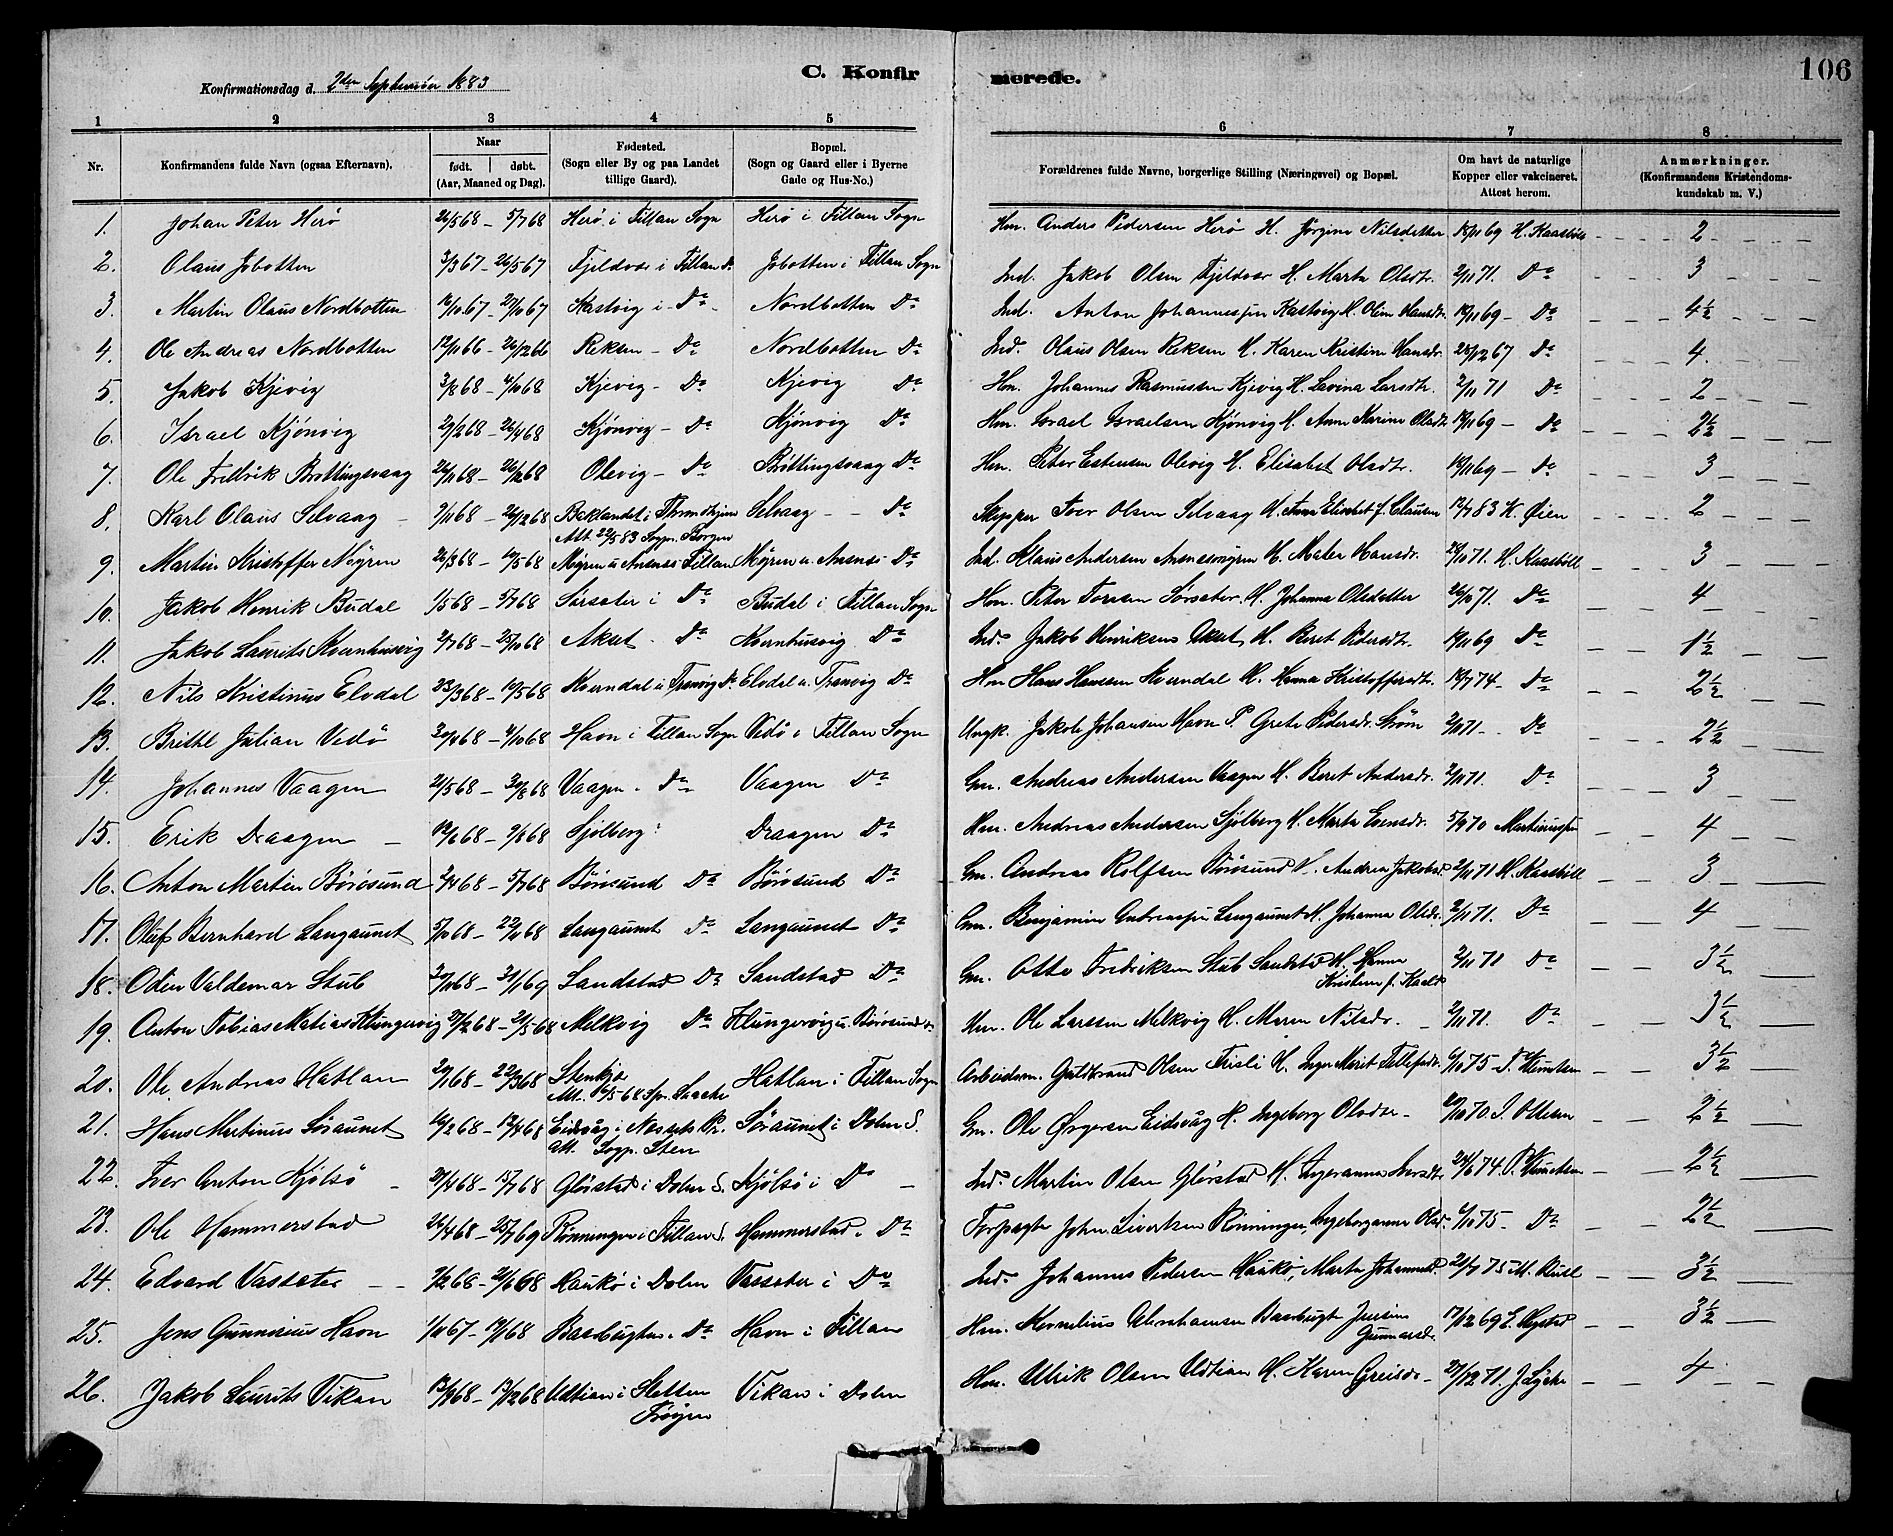 C. Konfirmerede. 106
Konfirmationsdag d. 2den September 1883
1 2 3 4 5 6 7 8
Nr. Konfirmandens fulde Navn (ogsaa Efternavn). Naar født. døbt. (Aar, Maaned og Dag). Fødested. (Sogn eller By og paa Landet tillige Gaard). Bopæl. (Sogn og Gaard eller i Byerne Gade og Hus-No.) Forældrenes fulde Navne, borgerlige Stilling (Næringsvei) og Bopæl. Om havt de naturlige Kopper eller vakcineret. Attest herom. Anmærkninger. (Konfirmandens Kristendomskundskab m. V.)
1. Johan Peter Herö 24/5 68 – 5/7 68 Herö i Fillan Sogn Herö i Fillan Sogn Hm. Anders Pedersen Herö H. Jörgine Nilsdatter 18/11 69 H. Kaasböll 2
2. Olaus Jobotten 3/3 67 – 26/5 67 Fjeldvær i Fillan Do Jobotten i Fillan Sogn Ind. Jakob Olsen Fjeldvær H. Marta Olsdtr. 2/11 71. Do 3
3. Martin Olaus Nordbotten 10/10 67 – 27/10 67 Kastvig i Do Nordbotten Do Ind. Anton Johannessen Kastvig H. Oline Hansdr. 19/11 69 – Do 4½
4. Ole Andreas Nordbotten 12/11 66 – 26/12 66 Reksen – Do Nordbotten Do Ind. Olaus Olsen Reksen H. Karen Kristine Hansdr. 28/12 67 Do 4.
5. Jakob Kjevig 3/8 68 – 4/10 68 Kjevig – Do Kjevig Do Hm. Johannes Rasmussen Kjevig H. Lavina Larsdtr. 2/11 71 Do 2
6. Israel Kjönvig 29/2 68 – 26/4 68 Kjönvig – Do Kjönvig Do Hm. Israel Israelsen Kjönvig H. Anne Karine Olsdtr. 19/11 69 – Do 2½
7. Ole Fredrik Bröttingsvaag 26/11 68 – 26/12 68 Olevig – Do Bröttingsvaag Do Hm. Peter Estensen Olevig H. Elisabet Olsdtr. 19/11 69 – Do 3
8. Karl Olaus Selvaag 9/11 68 – 26/12 68 Baklandet i Throndhjem Selvaag – Do Skipper Iver Olsen Selvaag H. Anna Elisabet f. Clausen 12/7 83 K. Øien 2
Att. 22/5 83 Sogn. Borgen
9. Martin Kristoffer Myren 26/3 68 – 10/5 68 Myren u. Ansnes Fillan Myren u. Ansnes Do Ind. Klaus Andersen Ansnesmyren H. Malea Hansdr. H. Kaasböll 3
10. Jakob Henrik Budal 1/5 68 – 5/7 68 Sörsæter i Do Budal i Fillan Sogn Hm. Peter Toresen Sörsæter H. Johanna Olsdatter 26/10 71. Do 4
11. Jakob Laurits Kvernhusvig 2/7 68 – 25/10 68 Akset – Do Kvernhusvig Do Ind. Jakob Henriksen Akset H. Beret Pedersdtr. 19/11 69 Do 1½
12. Nils Kristinus Elvdal 23/3 68 – 10/5 68 Kverndal u. Tranvig Do Elvdal u. Tranvig Do Hm Hans Hanssen Kverndal H. Hanna Kristoffersdtr. 18/7 74 – Do 2½
13. Brithe Julian Vedö 30/4 68 – 4/10 68 Havn i Fillan Sogn Vedö i Fillan Sogn Ungk. Jakob Johansen Havn P. Grete Pedersdr. Ström 2/11 71 Do 2½
14. Johannes Vaagen 24/5 68 – 30/8 68 Vaagen Do Vaagen Do Gm. Andreas Andersen Vaagen H. Beret Andersdr. 2/11 71. Do 3
15. Erik Draagen 12/6 68 – 9/8 68 Sjölberg Draagen Do Hm. Andreas Andersen Sjölberg H. Marta Evensdr. 5/9 70 4
16. Anton Martin Börösund 2/4 68 – 5/7 68 Börösund Do Börösund Do Gm. Andreas Rolfsen Börösund H. Andrea Jakobsd. 2/11 71 H. Kaasböll 3
17. Oluf Bernhard Langaunet 5/10 68 – 22/11 68 Langaunet Do Langaunet Do Gm. Benjamin Andreassen Langaunet H. Johanna Olsdr. 2/11 71. Do 4
18. Odin Valdemar Stub 30/11 68 – 31/1 69 Sandstad Do Sandstad Do Gm. Otto Fredriksen Stub Sandstad H. Hanna Kristine f. Kaald 2/11 71 Do 3½
19. Anton Tobias Matias Klungervig 27/2 68 – 21/5 68 Melkvig Do Klungervig u. Börosund Do Hm. Ole Larssen Melkvig H. Maren Nilsdr. 2/11 71. Do 3½
20. Ole Andreas Hatlan 20/1 68 – 22/3 68 Stenkjær Hatlan i Fillan Sogn Arbeidsm. Guldbrand Olsen Frisli H. Inger Marit Tollefsdr. 6/10 75 3½
21. Hans Martinus Söraunet 10/2 68 – 12/4 68 Eidsvåg i Nessets Pr. Söraunet i Dolm S. Gm. Ole Ørgersen Eidsvåg H. Ingeborg Olsdtr. 20/10 70. I. Ottesen 2½
Att. Sogn. Sten
22. Iver Anton Kjölsö 20/4 68 – 15/7 68 Glörstad i Dolm S. Kjölsö i Do Ind. Martin Olsen Glörstad H. Ingeranna Iversdtr. 24/6 74. 2½
23. Ole Hammerstad 26/4 68 – 25/7 69 Rönningen i Fillan S. Hammerstad Do Forpagter John Sivertsen Rönningen, Ingeboranna Olsd. 6/10 75 – Do 2½
24. Edvard Vassæter 7/2 68 – 21/6 68 Haukö i Dolm Vassæter i Do Ind. Johannes Pedersen Haukö, Marta Johannesd. 21/7 75 M. Buel 3½
25. Jens Gunnerius Havn 1/11 67 – 19/1 68 Bassbugten Do Havn i Fillan Hm. Kornelius Abrahamsen Bassbugt Jensine Gunnarsd. 17/12 69 E. Mystad 3½
26. Jakob Laurits Vikan 13/9 68 – 13/12 68 Uttian i Sletten Fröyen Vikan i Dolm Hm. Ulrik Olsen Udtian H. Karen Greisdr. 27/12 71. J. Lyche 4